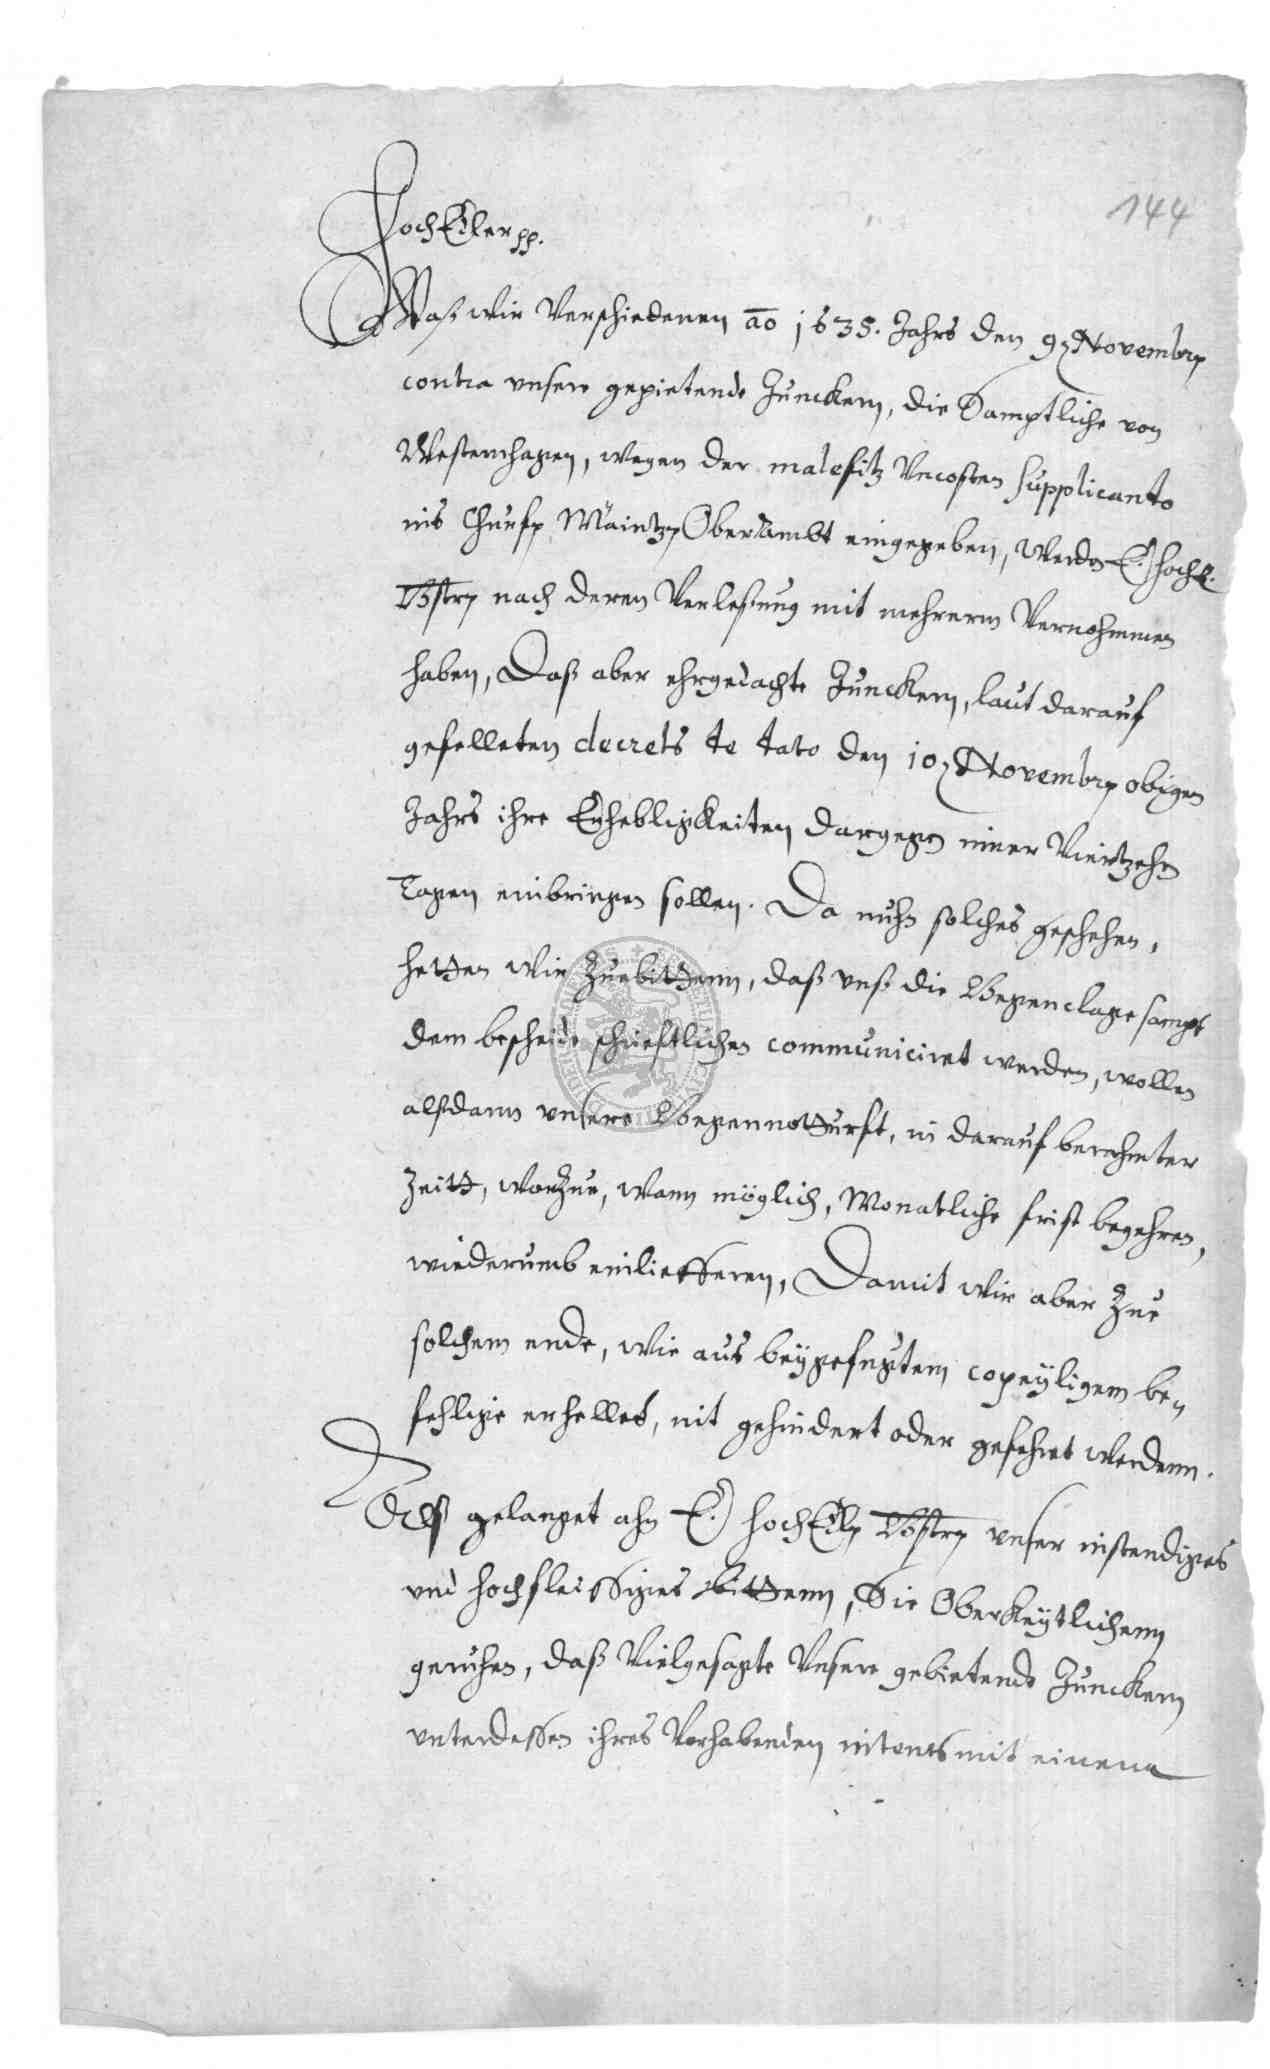 144
HochEdler pp.
Waß wir Verschiedenen ao 1638. Jahrs den 9. Novembris
contra unsere gepietende Junckern, die Samptliche von
Westernhagen, wegen der malefitz Uncosten supplicando
ins Churf. Maintz. OberAmbt eingegeben, werden E. HochE.
Gstr. nach deren Verleßung mit mehrerm Vernohmmen
haben, Daß aber ehrgedachte Junckern, laut darauf
gefelleten decrets de dato den 10. Novembris obigen
Jahrs ihre Erhebligkeiten dargegen inner Viertzehn
Tagen einbringen sollen. Da nuhn solches geschehen,
hetten wir Zuebittenn, daß unß die Gegenclage sampt
dem bescheide schrieftlichen communiciret werden, wollen
alßdann unsere Gegennotturft, in darauf berahmter
Zeitt, worzue, wann möglich, Monatliche frist begehren,
wiederumb einlieffern, Damit wir aber Zue
solchem ende, wie aus beygefügtem copeyligem be-
fehlige erhellet, nit gehindert oder gefehret werdenn.
Alß gelanget ahn E. HochEdl. Gstr. unser instendiges
und hochfleissiges bittenn, Sie Oberkeytlichenn
geruhen, daß Vielgesagte Unsere gebietende Junckern
unterdessen ihres Vorhabenden intents mit einem